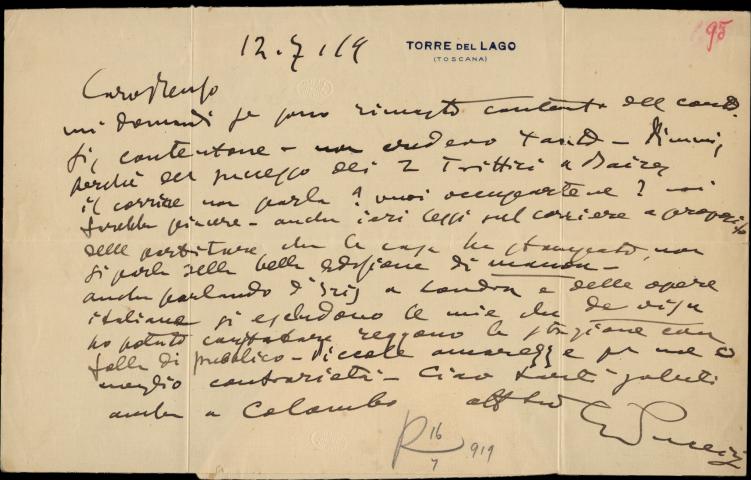 95
12.7.19
TORRE DEL LAGO
(TOSCANA)
Caro Renzo
mi domandi se sono rimasto contento del cont.
Si, contentone - non credevo tanto - Dimmi,
perchè del successo dei 2 Trittici a Baires
il corriere non parla? vuoi occupartene? mi
farebbe piacere - anche ieri leggi sul corriere a proposito
delle partiture che la casa ha stampato, non
si parla della bella edizione di manon -
anche parlando d'Iris a Londra e delle opere
italiane si escludono le mie che de visu
ho potuto constatare reggono la stagione con
folla di pubblico - Piccole amarezze per me o
meglio contrarietà - Ciao tanti saluti
anche a Colombo aff tuo G Puccini
R 16/7 919